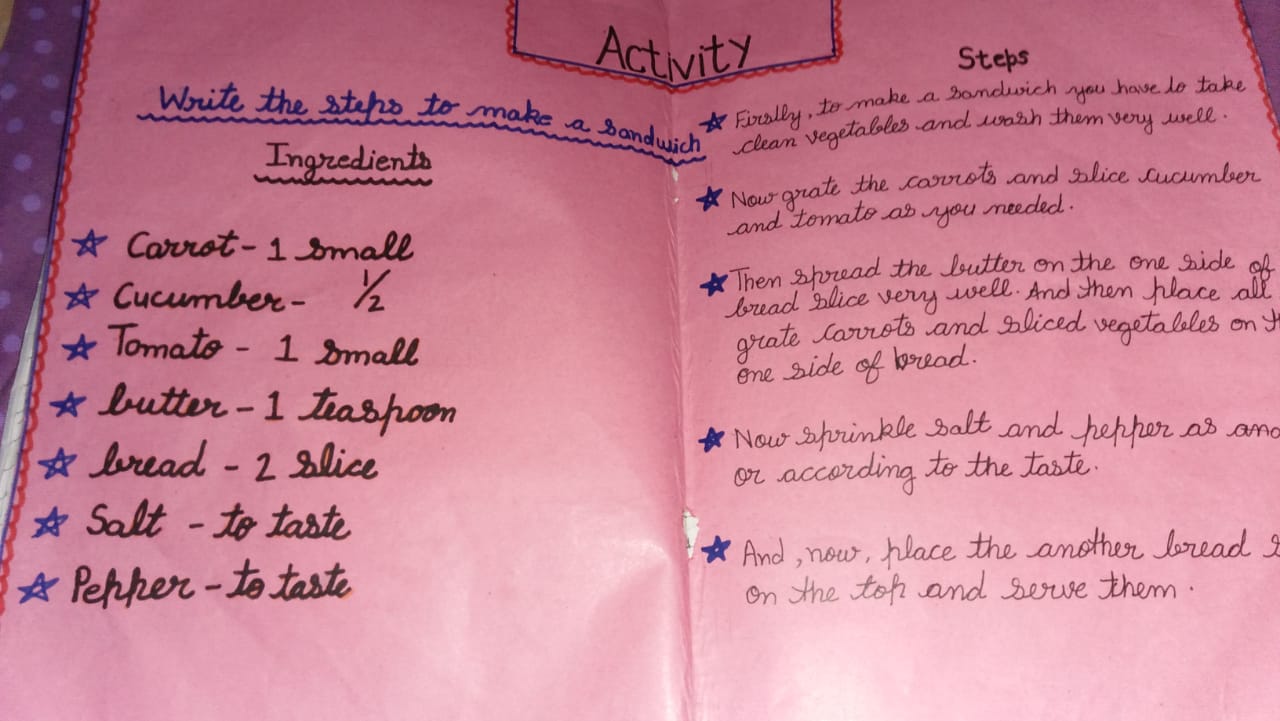 Activity
Write the steps to make a sandwich
Ingredients
Carrot - 1 small
Cucumber - 1/2
Tomato - 1 small
butter - 1 teaspoon
bread - 2 slice
Salt - to taste
Pepper - to taste
Steps
Firstly, to make a sandwich you have to take
clean vegetables and wash them very well.
Now grate the carrots and slice cucumber
and tomato as you needed.
Then spread the butter on the one side of
bread slice very well. And then place all
grate carrots and sliced vegetables on
one side of bread.
Now sprinkle salt and pepper as and
or according to the taste.
And, now, place the another bread
on the top and serve them.